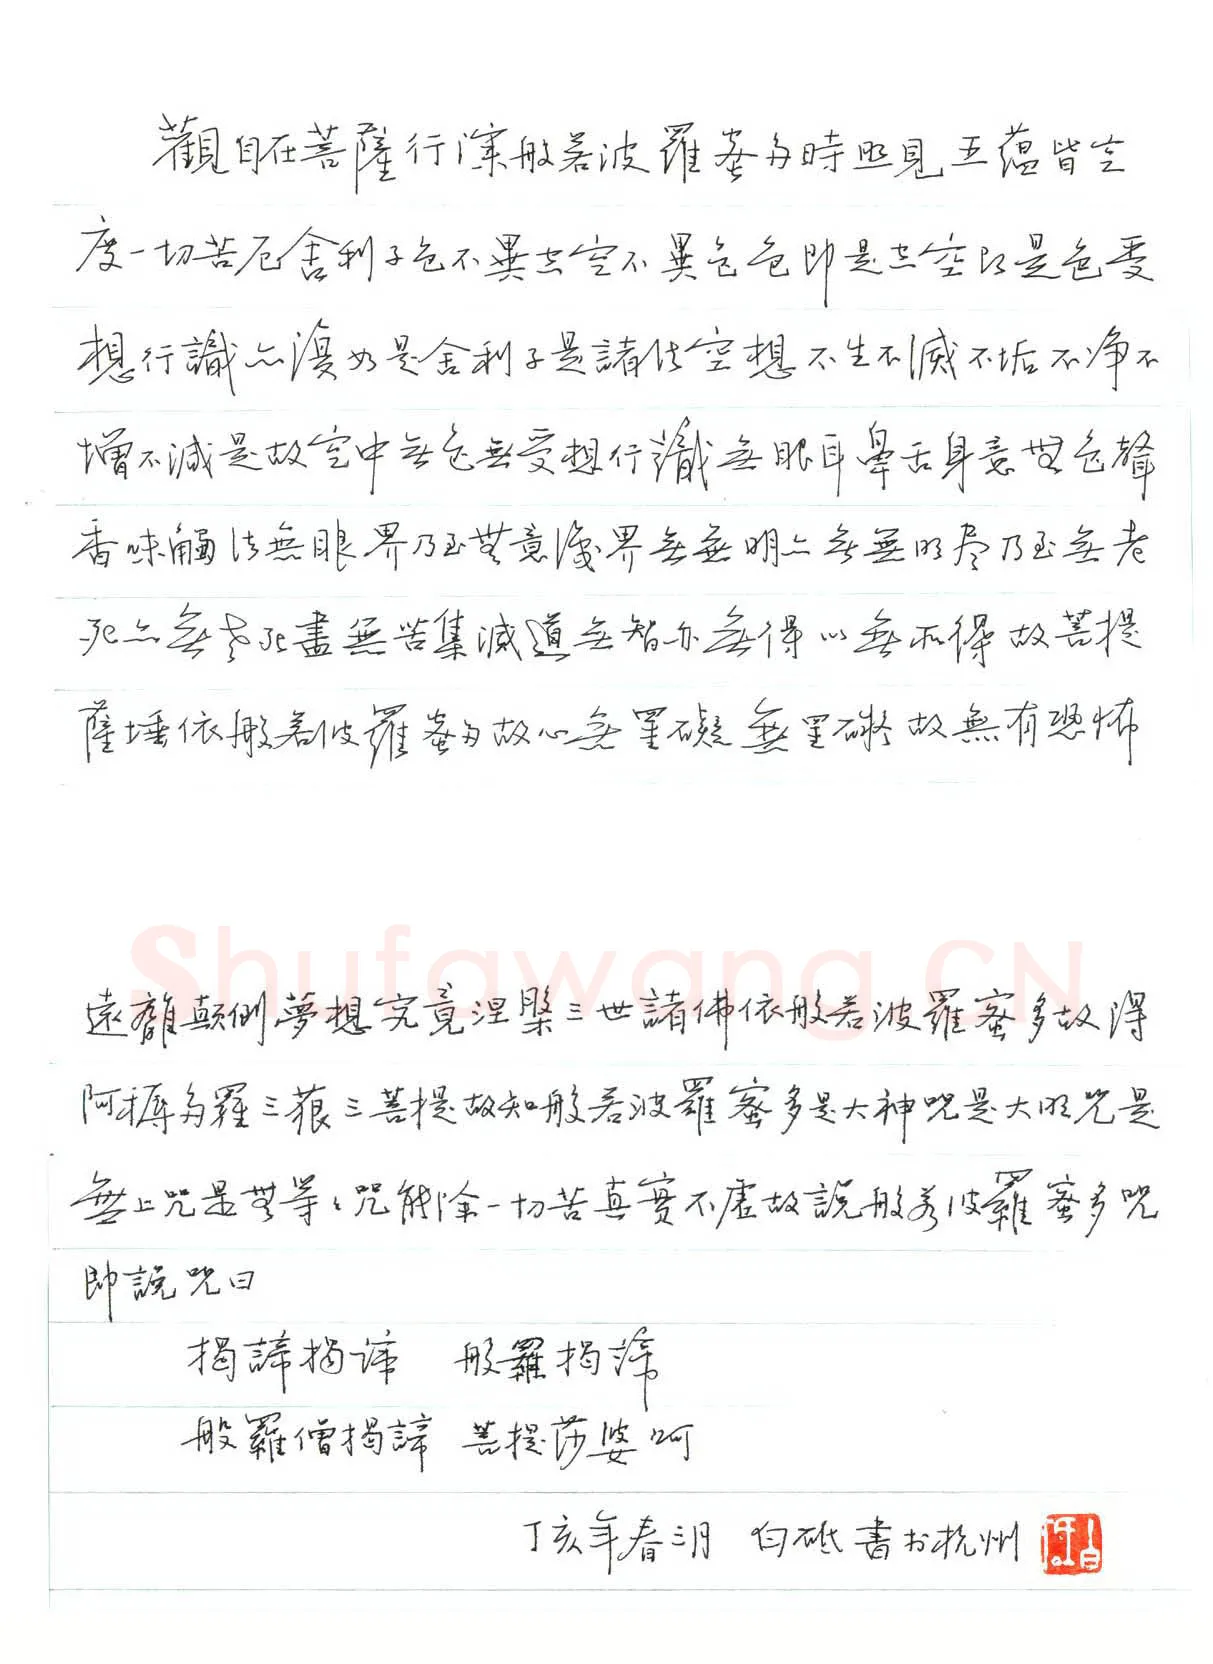 觀自在菩薩行深般若波羅蜜多時照見五蘊皆空
度一切苦厄舍利子色不異空空不異色色即是空空即是色受
想行識亦復如是舍利子是諸法空想不生不滅不垢不净不
增不減是故空中無色無受想行識無眼耳鼻舌身意無色聲
香味觸法無眼界乃至無意識界無無明亦無無明尽乃至無老
死亦無老死盡無苦集滅道無智亦無得以無所得故菩提
薩埵依般若波羅蜜多故心無罣礙無罣礙故無有恐怖
Shufawang.CN
遠離顛倒夢想究竟涅槃三世諸佛依般若波羅蜜多故得
阿耨多羅三藐三菩提故知般若波羅蜜多是大神咒是大明咒是
無上咒是無等々咒能除一切苦真實不虛故説般若波羅蜜多咒
即説咒曰
揭諦揭諦 般羅揭諦
般羅僧揭諦 菩提莎婆呵
丁亥年春三月 白砥書於杭州
白砥